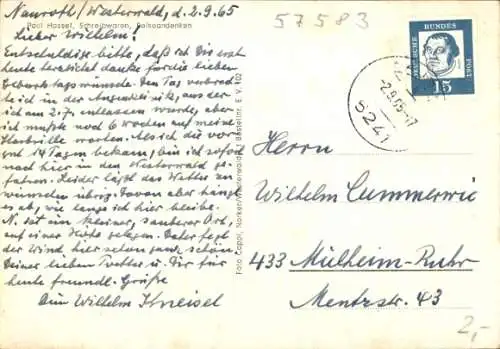 57583
Neunroth/Westerwald, d. 2.9.65
Paul Hassel, Schreibwaren, Reiseandenken
Lieber Wilhelm!
Entschuldige bitte, daß ich Dir erst
heute herzlichst danke für die lieben
Geburtstagswünsche. Den Tag verbrach-
te ich in der Augenklinik, aus der
ich am 2.7. entlassen wurde, aber
ich mußte noch 6 Wochen auf meine
Starbrille warten. Als ich die vor
gut 14 Tagen bekam, bin ich sofort
nach hier in den Westerwald ge-
fahren. Leider läßt das Wetter zu
wünschen übrig. Davon aber hängt
es ab, wie lange ich hier bleibe.
N. ist ein kleiner, sauberer Ort,
auf einer Höhe gelegen. Daher fegt
der Wind hier schon ganz schön.
Deiner lieben Mutter u. Dir für
heute freundl. Grüße
Dein Wilhelm Kneisel
Foto Cappi, Norken/Westerwald
Bestellnr. E V 102
DEUTSCHE BUNDESPOST
15
2.9.65-17
5241
Herrn
Wilhelm Cummerwie
433 Mülheim-Ruhr
Mentzstr. 43
2,-